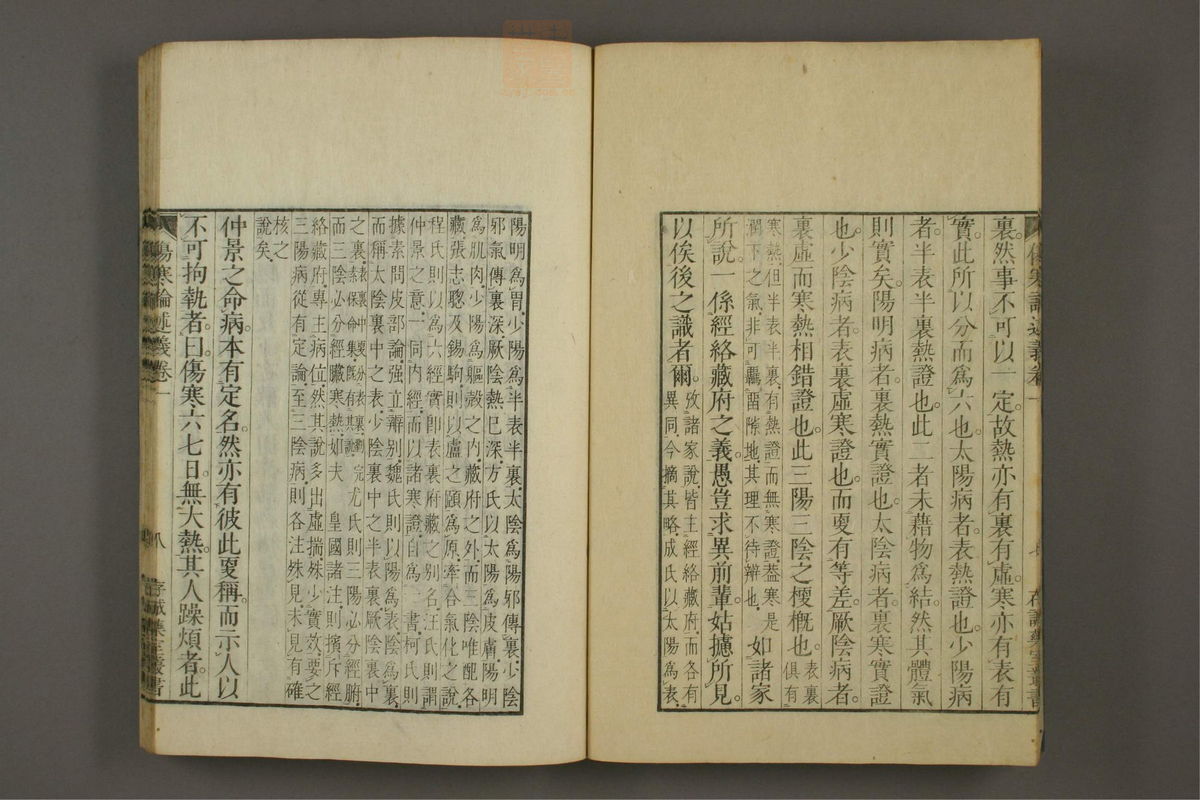 傷寒論述義卷一
裏。然事不可以一定。故熱亦有裏有虛。寒亦有表有
實。此所以分而爲六也。太陽病者。表熱證也。少陽病
者。半表半裏熱證也。此二者。未藉物爲結。然其體氣
則實矣。陽明病者。裏熱實證也。太陰病者。裏寒實證
也。少陰病者。表裏虛寒證也。而更有等差。厥陰病者。
裏虛而寒熱相錯證也。此三陽三陰之梗概也。表裏
俱有
寒熱。但半表半裏。有熱證而無寒證。葢寒是
潤下之氣。非可羈畱隙地。其理不待辨也。
如諸家
所說。一係經絡藏府之義。愚豈求異前輩。姑攄所見。
以俟後之識者爾。
攷諸家說。皆主經絡藏府。而各有
異同。今摘其略。成氏以太陽爲表。
陽明爲胃。少陽爲半表半裏。太陰爲陽邪傳裏。少陰
邪氣傳裏深。厥陰熱已深。方氏以太陽爲皮膚。陽明
爲肌肉。少陽爲軀殼之內。藏府之外。而三陰唯配各
藏。張志聰及錫駒。則以盧之頤爲原。牽合氣化之說。
程氏則以爲六經實卽表裏府藏之別名。汪氏則謂
仲景之意。一同內經。而以諸寒證。自爲一書。柯氏則
據素問皮部論。强立辨別。魏氏則以陽爲表。陰爲裏。
而稱太陰裏中之表。少陰裏中之半表裏。厥陰裏中
之裏。
尤氏則三陽必分經腑。
而三陰必分經臟寒熱。如夫 皇國諸注。則擯斥經
絡藏府。專主病位。然其說多出虛揣。殊少實效。要之
三陽病從有定論。至三陰病。則各注殊見。未見有確
核之
說矣。
仲景之命病。本有定名。然亦有彼此更稱。而示人以
不可拘執者。曰傷寒六七日。無大熱。其人躁煩者。此
傷寒論述義卷一
八
存誠藥室叢書